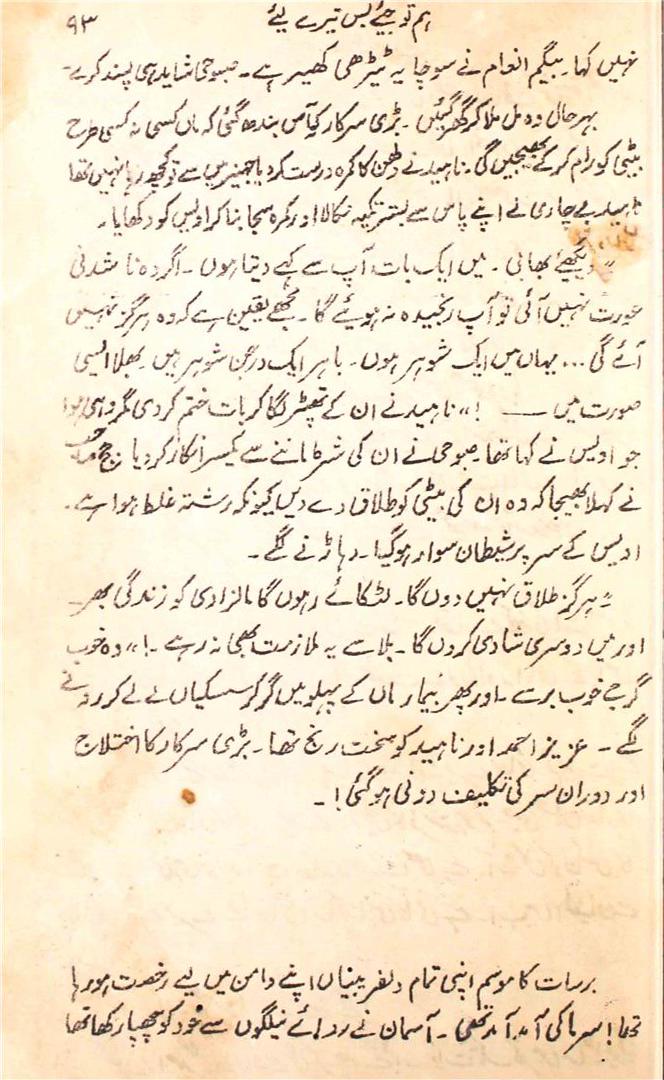 ہم تو جیئے بس تیرے لیئے
۹۳
نہیں کہا۔ بیگم انعام نے سوچا یہ ٹیڑھی کھیر ہے۔ صبوحی شاید ہی پسند کرے۔
بہر حال وہ مل ملا کر گھر گئیں۔ بڑی سرکار کی آس بندھ گئی کہ ماں کسی نہ کسی طرح
بیٹی کو رام کر کے بھیجیں گی۔ ناہید نے دلھن کا کمرہ درست کر دیا جہیز میں سے تو کچھ رہا نہیں تھا
ناہید بے چاری نے اپنے پاس سے بستر تکیہ نکالا اور کمرہ سجا بنا کر اویس کو دکھایا۔
"دیکھئے بھابی۔ میں ایک بات آپ سے کہے دیتا ہوں۔ اگر وہ نا شدنی
عورت نہیں آئی تو آپ رنجیدہ نہ ہوئیے گا۔ مجھے یقین ہے کہ وہ ہرگز نہیں
آئے گی... یہاں میں ایک شوہر ہوں۔ باہر ایک درجن شوہر ہیں۔ بھلا ایسی
صورت میں ــــ !" ناہید نے ان کے تھپڑ لگا کر بات ختم کر دی مگر وہی ہوا
جو اویس نے کہا تھا۔ صبوحی نے ان کی شرط ماننے سے یکسر انکار کر دیا جج صاحب
نے کہلا بھیجا کہ وہ ان کی بیٹی کو طلاق دے دیں کیونکہ رشتہ غلط ہوا ہے۔
اویس کے سر پر شیطان سوار ہو گیا۔ دہاڑنے لگے۔
"ہرگز طلاق نہیں دوں گا۔ لٹکائے رہوں گا مالزادی کو زندگی بھر۔
اور میں دوسری شادی کر دوں گا۔ بلا سے یہ ملازمت بھی نہ رہے۔!" وہ خوب
گرجے خوب برسے۔ اور پھر بیمار ماں کے پہلو میں گر کر سسکیاں لے لے کر رونے
لگے۔ عزیز احمد اور ناہید کو سخت رنج تھا۔ بڑی سرکار کا اختلاج
اور دوران سر کی تکلیف دونی ہو گئی!۔
برسات کا موسم اپنی تمام دلفریبیاں اپنے دامن میں لیے رخصت ہو رہا
تھا! سرما کی آمد آمد تھی۔ آسمان نے ردائے نیلگوں سے خود کو چھپا رکھا تھا